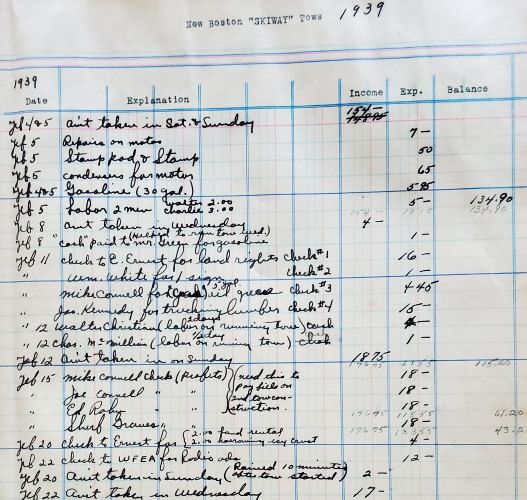 New Boston "SKIWAY" Tows 1939
1939
Date Explanation Income Exp. Balance
154-
Feb 4&5 Am't taken in Sat. & Sunday
Feb 5 Repairs on motor 7-
Feb 5 Stamp pad & Stamp 50
Feb 5 condenser for motor 65
Feb 4&5 Gasoline (30 gal.) 5 85
Feb 5 Labor 2 men Walter 2.00 Charlie 3.00 5- 134.90
Feb 8 Am't taken in Wednesday 4-
Feb 8 "Cash" paid to Mr. Green for gasoline 1-
Feb 11 check to E. Ernest for land rights check #1 16-
" Wm. White for 1 sign check #2 1-
" Mike Connell for oil check #3 4 40
" Jos. Kennedy for trucking lumber check #4 15-
" 12 Walter Christian (labor on running tow) 2 days cash
" 12 Chas. McMillin (labor on running tow) 1/2 day 1-
Feb 12 Am't taken in on Sunday 18 75 115.20
Feb 15 Mike Connell check (profits) need this to 18-
" Joe Connell " " pay bills on 18-
" Ed Raby " " 2nd tow con- 18-
struction.
" Sherb Graves " " 18- 61.20
Feb 20 check to Ernest for 2.00 land rental 2.00 harrowing icy crust 4- 43.2
Feb 22 check to WFEA for Radio ads 12-
Feb 20 Am't taken in Sunday (Rained 10 minutes after tow started) 2-
Feb 22 Am't taken in Wednesday 17-